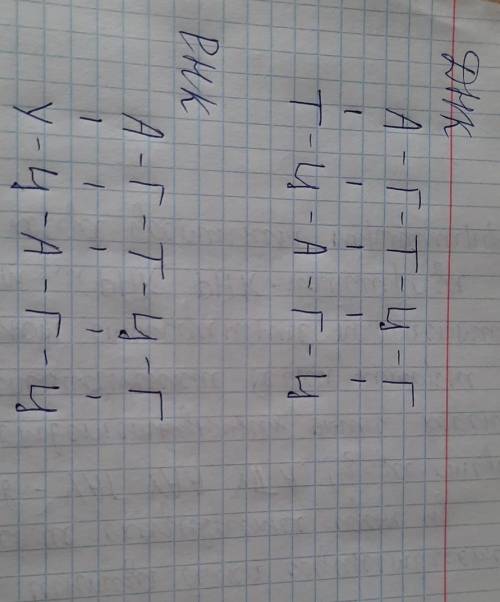 ДНК
А-Г-Т-Ц-Г
Т-Ц-А-Г-Ц
РНК
А-Г-Т-Ц-Г
У-Ц-А-Г-Ц